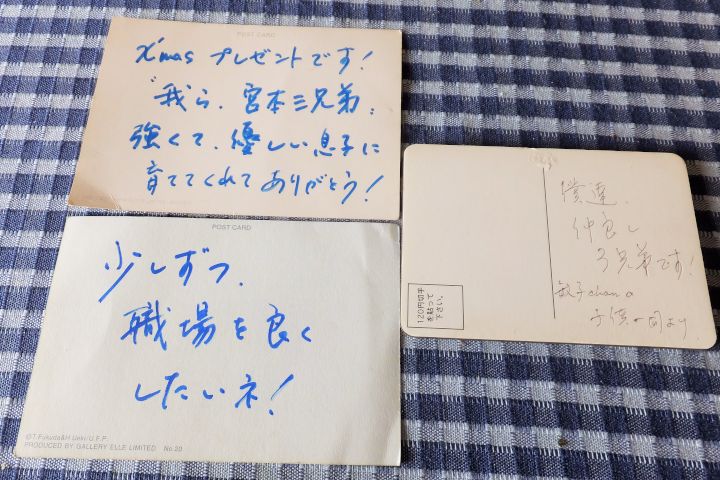 POST CARD
X'mas プレゼントです!
"我ら、宮本三兄弟"
強くて、優しい息子に
育ててくれてありがとう!
POST CARD
少しずつ、
職場を良く
したいネ!
©T.Fukuda&H.Ueki/U.F.P.
PRODUCED BY GALLERY ELLE LIMITED No.20
僕達、
仲良し
3兄弟です!
敏子chanの
子供一同より
120円切手
を貼って
下さい。